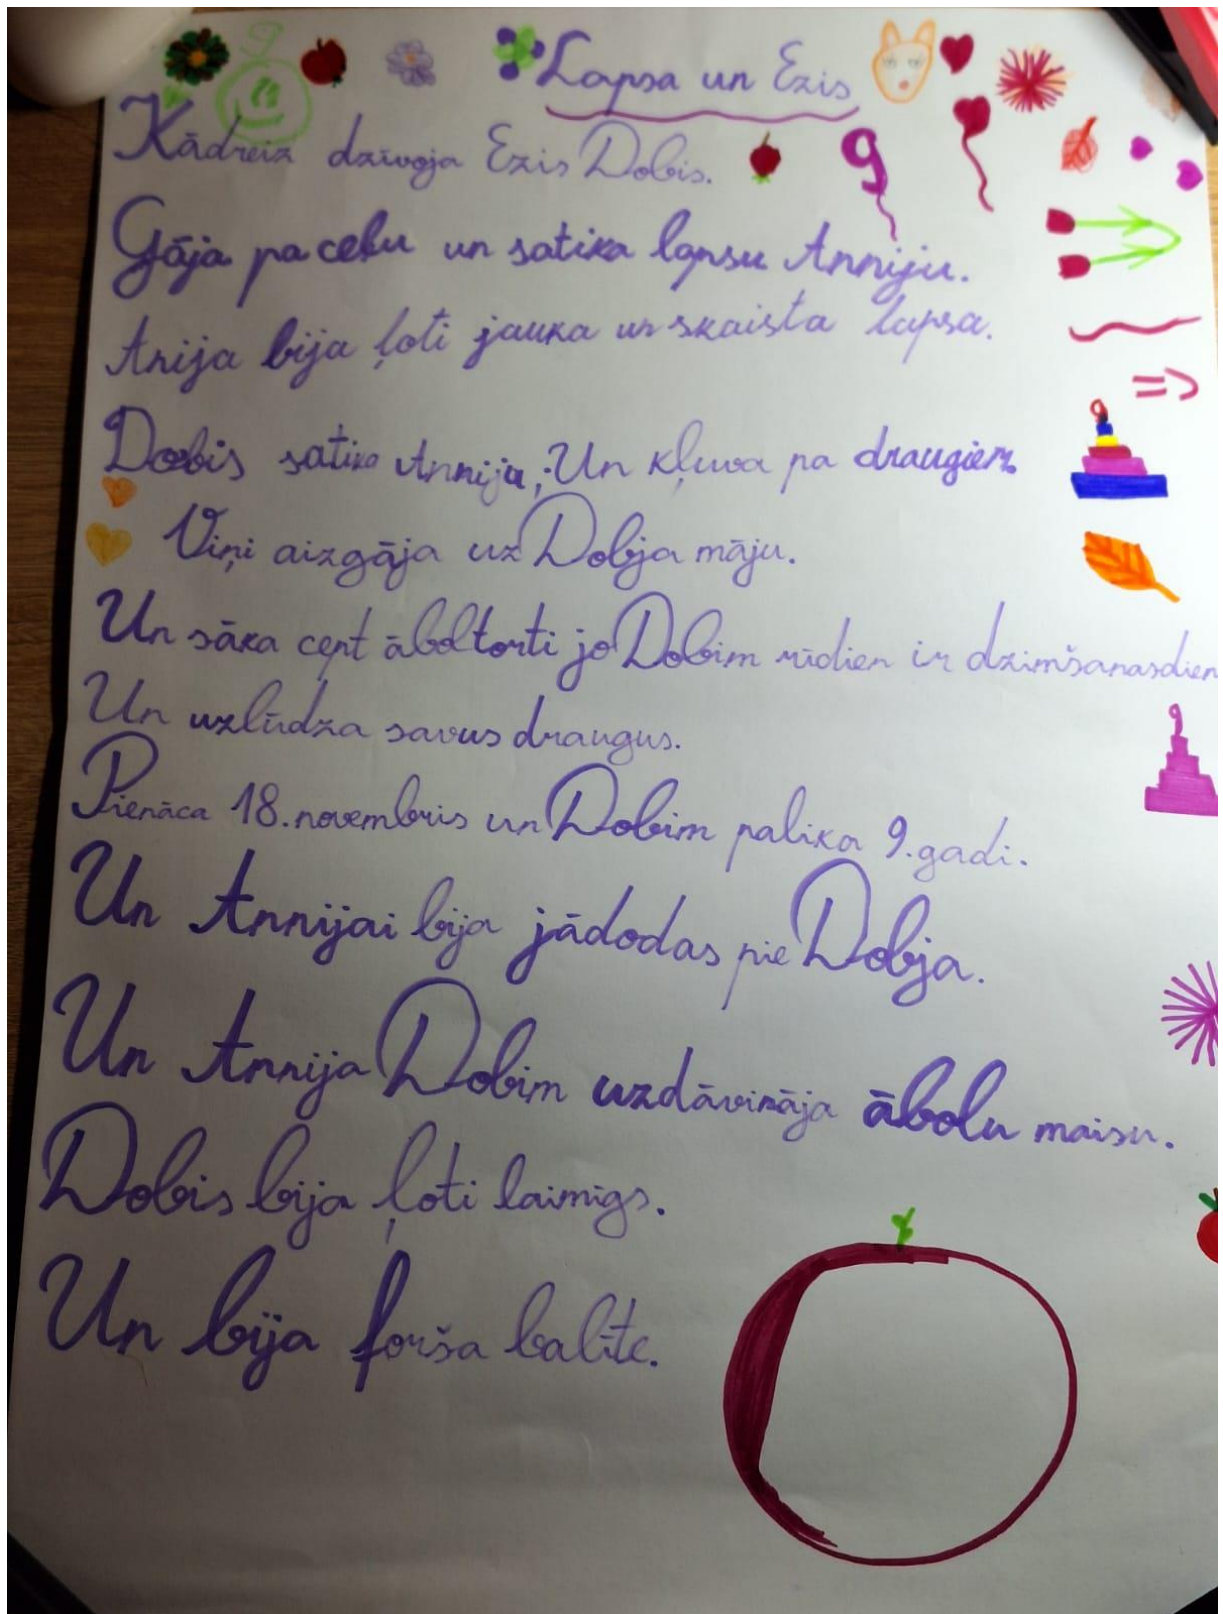 Lapsa un Ezis
Kādreiz dzīvoja Ezis Dobis.
9
Gāja pa ceļu un satika lapsu Anniju.
Anija bija ļoti jauka un skaista lapsa.
Dobis satika Anniju, Un kļuva pa draugiem.
Viņi aizgāja uz Dobja māju.
Un sāka cept āboltorti jo Dobim rīdien ir dzimšanasdien
Un uzlūdza savus draugus.
Pienāca 18.novembris un Dobim palika 9.gadi.
Un Annijai bija jādodas pie Dobja.
Un Annija Dobim uzdāvināja ābolu maisu.
Dobis bija ļoti laimīgs.
Un bija forša balīte.